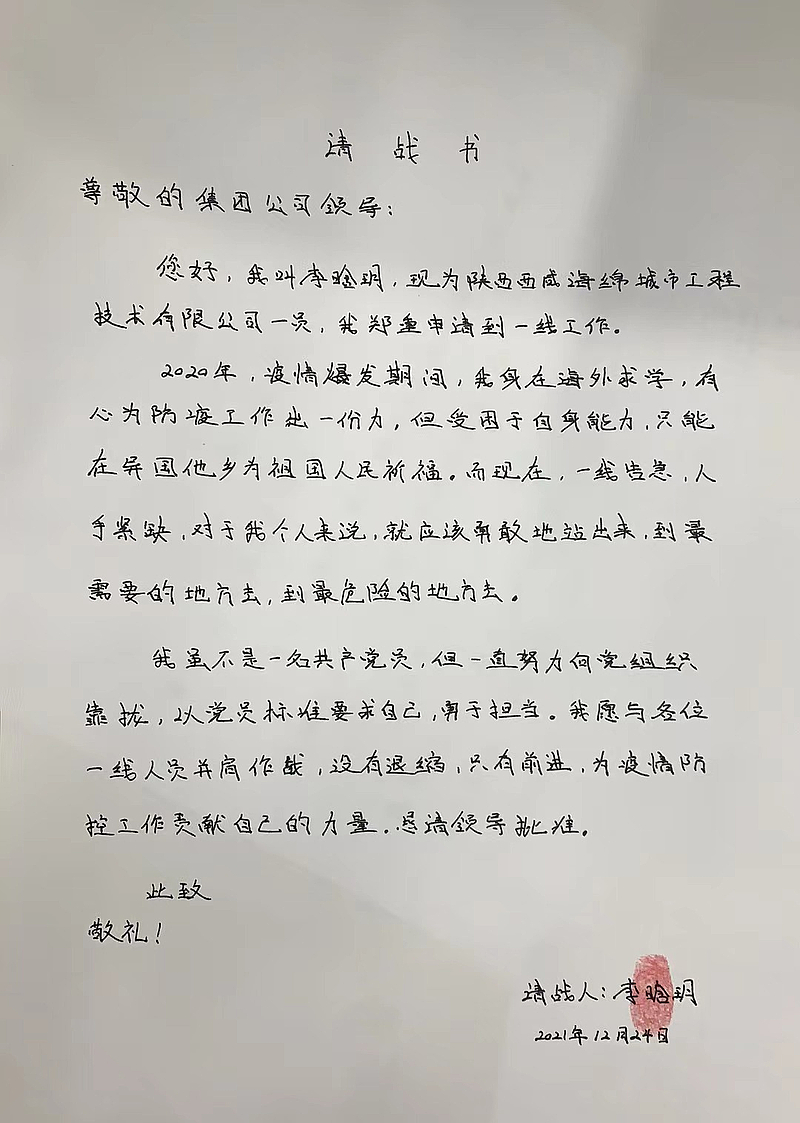 请战书
尊敬的集团公司领导：
您好，我叫李晗玥，现为陕西西咸海绵城市工程
技术有限公司一员，我郑重申请到一线工作。
2020年，疫情爆发期间，我身在海外求学，有
心为防疫工作出一份力，但受困于自身能力，只能
在异国他乡为祖国人民祈福。而现在，一线告急，人
手紧缺，对于我个人来说，就应该勇敢地站出来，到最
需要的地方去，到最危险的地方去。
我虽不是一名共产党员，但一直努力向党组织
靠拢，以党员标准要求自己，勇于担当。我愿与各位
一线人员并肩作战，没有退缩，只有前进，为疫情防
控工作贡献自己的力量。恳请领导批准。
此致
敬礼！
请战人：李晗玥
2021年12月24日